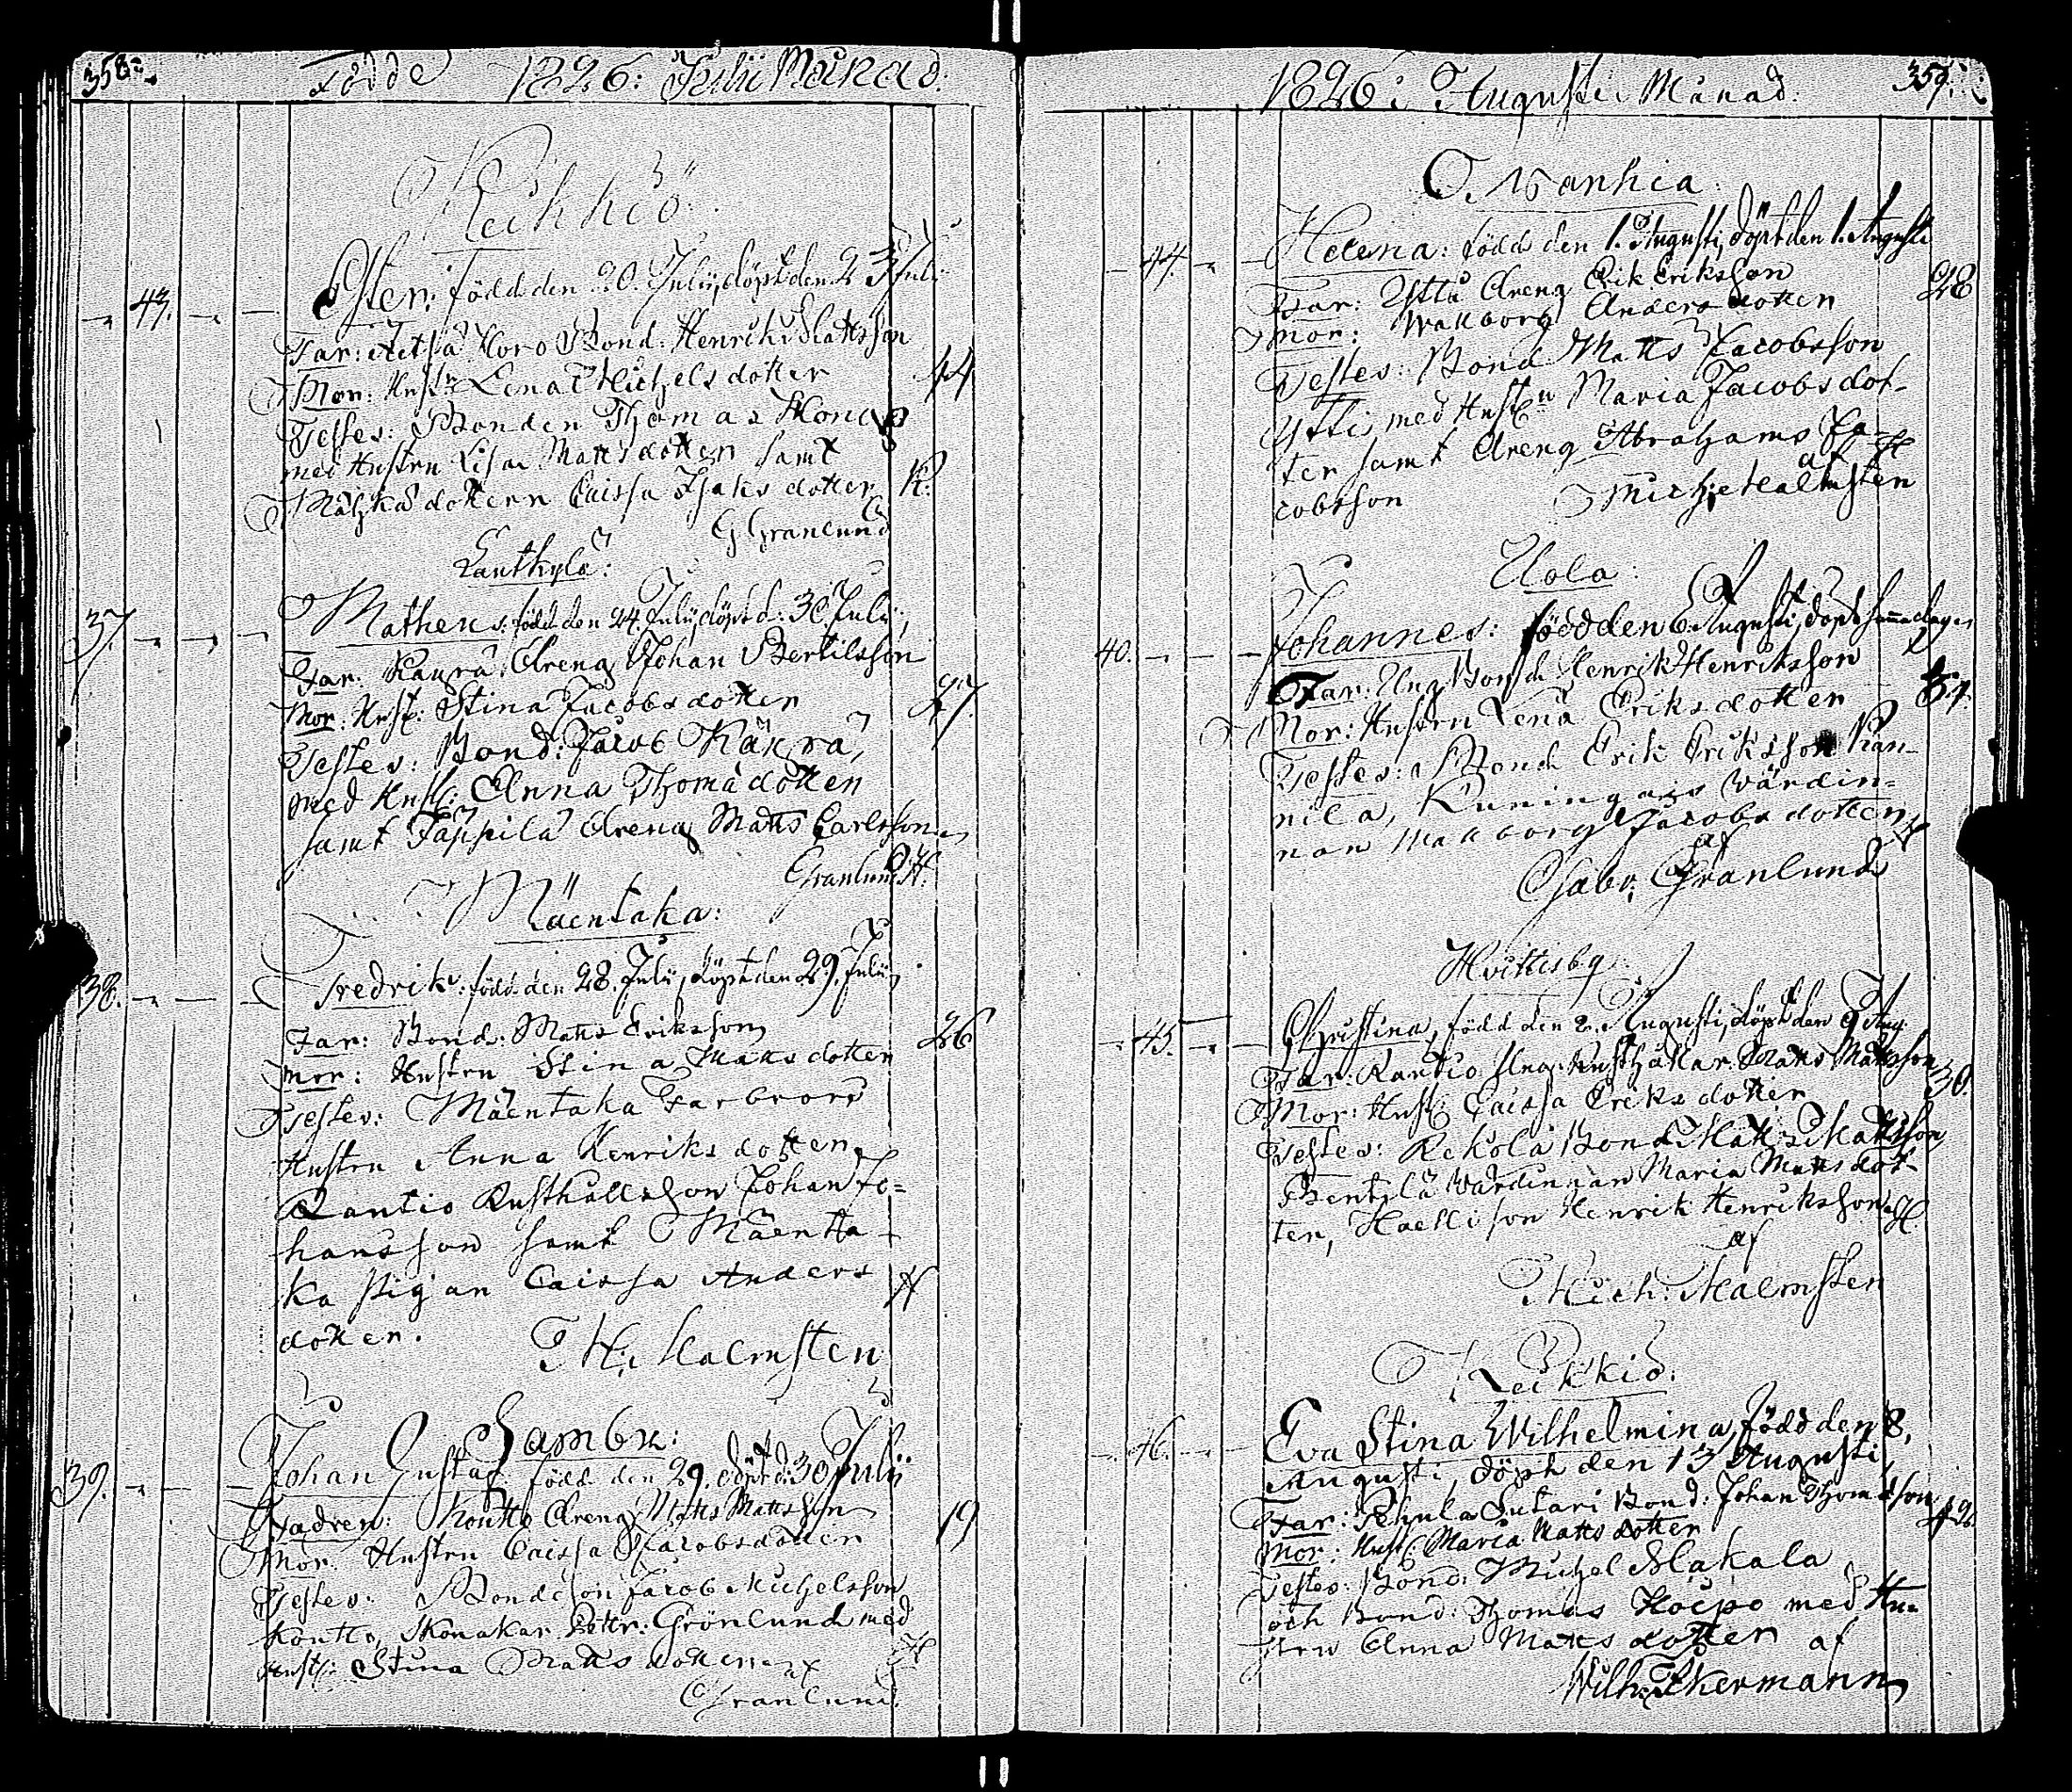 358.
Födde 1826: Julii Månad.
Keikkiö
Ester: född den 20. Julii, döpt den 23 Julii
43.
Far: Bond: Henrik Mattsson
Mor: Hustr Lena Michelsdotter
44
Testes: Bonden Thomas
med Hustru Lisa Mattsdotter samt
dottern Caissa Isaksdotter
K.
G Granlund
Lautkylä:
Matheus: född den 24. Julii, döpt d: 30 Julii,
37.
Far: Dreng Johan Bertilsson
Mor: Hust: Stina Jacobsdotter
27.
Testes: Bond: Jacob
med Hust: Anna Thomädotter
samt Täppilä Dreng Matts Carlsson
Granlund H.
Mäentaka:
Fredrik: född den 28. Julii, döpt den 29. Julii,
38.
Far: Bond: Matts Eriksson
26
Mor: Hustru Stina Mattsdotter
Testes: Mäentaka Farbrors
Hustru Anna Henriksdotter,
Rautio Rusthållsson Johan Jo=
hansson samt Mäenta-
ka Pigan Caissa Anders
dotter. H
M: Malmsten
Sambu:
Johan Gustaf född den 29. döpt d: 30 Julii
39.
Fadren: Kontto Dreng Matts Mattsson
19
Mor: Hustru Caissa Jacobsdotter
Testes: Bondeson Jacob Michelsson
Kontto, Skomakar Pettr: Grönlund med
Hust: Stina Mattsdotter af H
Granlund.
1826: Augusti Månad.
359.
Wanhia
Helena: född den 1. Augusti, döpt den 1. Augusti
44.
28
Far: Yttis Dreng Erik Eriksson
Mor: Wallborg Andersdotter
Testes: Bond Matts Jacobsson
Ytti, med Hustru Maria Jacobsdot-
ter samt Dreng Abrahams Ja-
cobsson af H
Mich: Malmsten
Kola:
Johannes: född den 6. Augusti, döpt samma dag
40.
Far: Ung Bond Henrik Henriksson
37.
Mor: Hustru Lena Eriksdotter
Testes: Bond Erik Eriksson Kan-
nila, Kuningais Värdin=
nan Wallborg Jacobsdotter,
af
Gabr: Granlund
Hvittisby
Christina, född den 2. Augusti, döpt den 9 Aug.
45.
Far: Rautio Ung: Rusthållar: Matts Mattsson
30.
Mor: Hust: Caissa Eriksdotter
Testes: Rekola Bond Matts Mattsson,
Pentilä Värdinnan Maria Mattsdot-
ter, son Henrik Henriksson H
af
Mich: Malmsten
Keikkiö:
Eva Stina Wilhelmina, född den 8,
46.
Augusti, döpt den 13 Augusti,
Far: Sutari Bond: Johan Thomasson
42.
Mor: Hust: Maria Mattsdotter
Testes: Bond: Michel Makala
och Bond: Thomas Hoipo med Hu-
stru Anna Mattsdotter af
Wilh: Åkermann